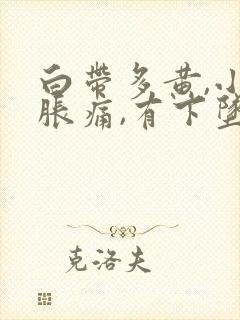 白带多黄,小
胀痛,有下坠
克洛夫